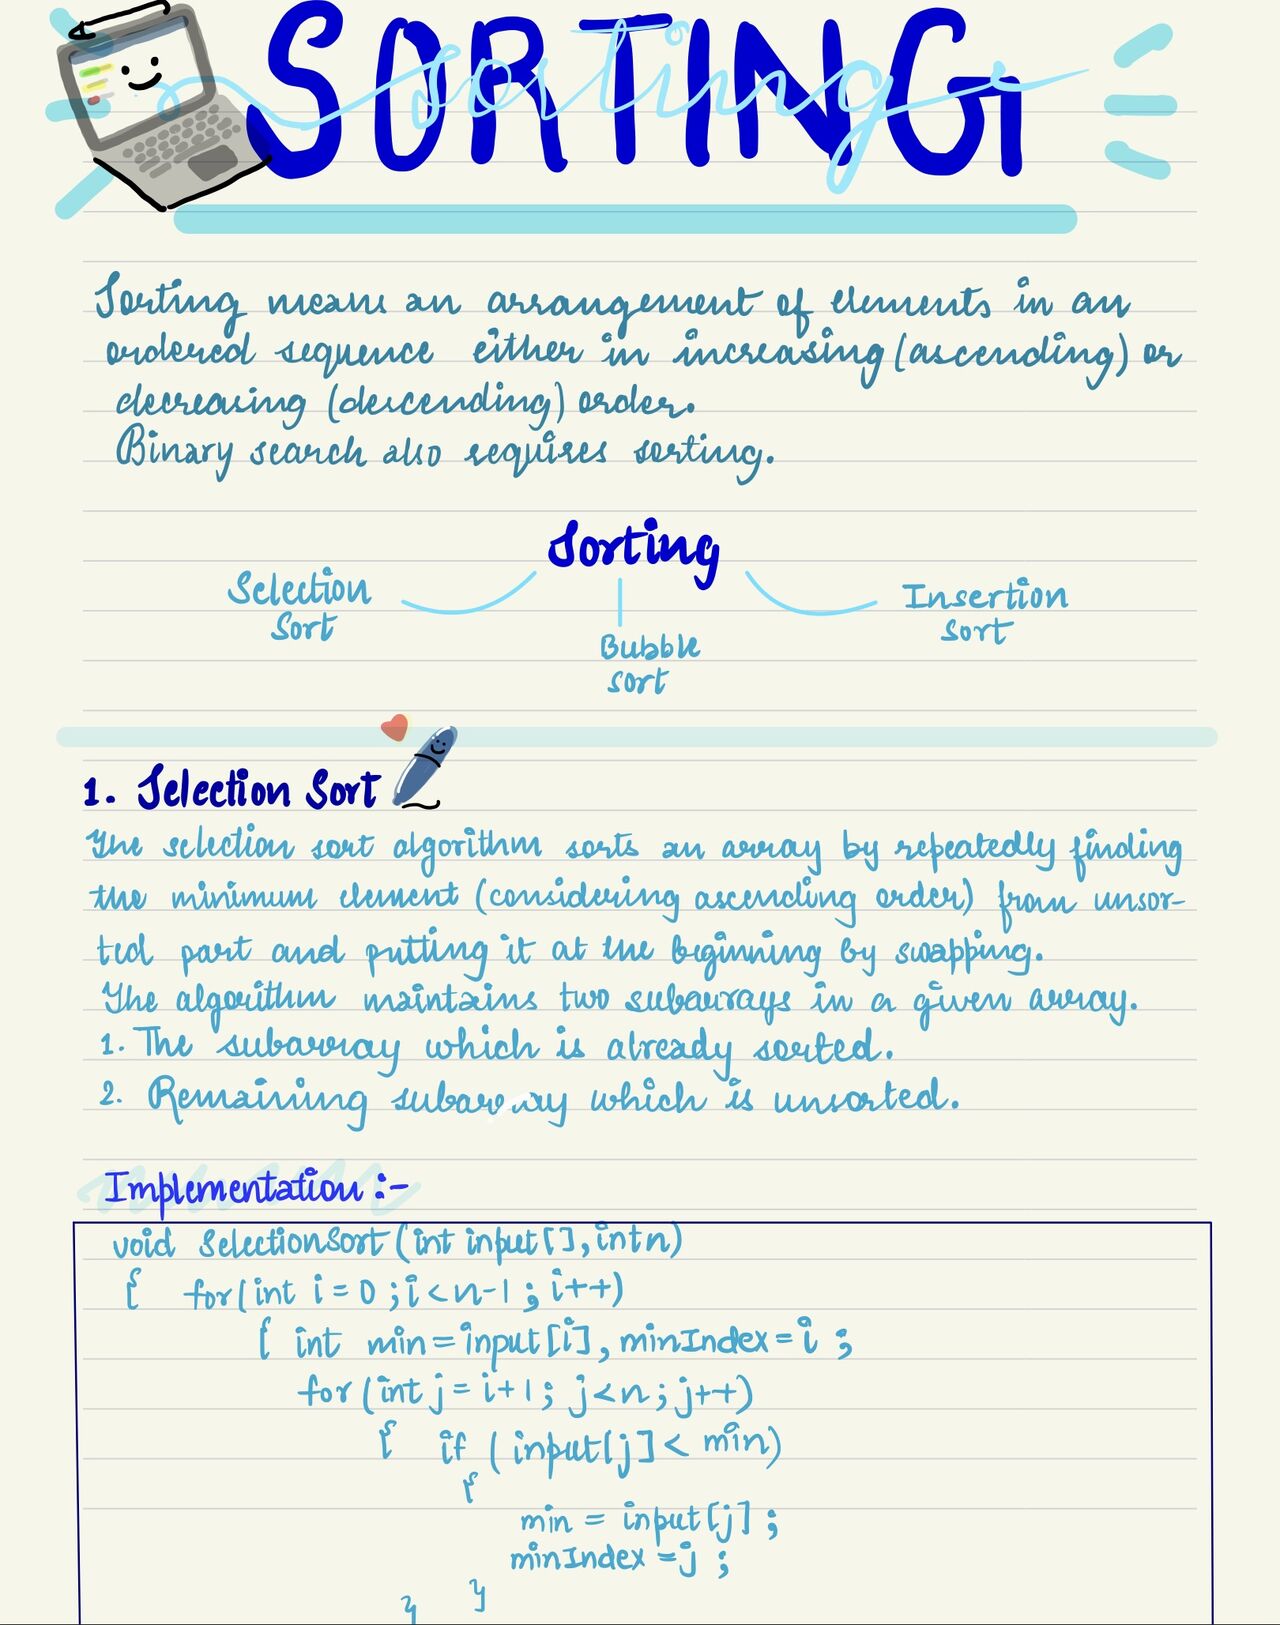 SORTING
sorting
Sorting means an arrangement of elements in an
ordered sequence either in increasing (ascending) or
decreasing (descending) order.
Binary search also requires sorting.
Sorting
Selection
Sort
Bubble
sort
Insertion
sort
1. Selection Sort
The selection sort algorithm sorts an array by repeatedly finding
the minimum element (considering ascending order) from unsor-
ted part and putting it at the beginning by swapping.
The algorithm maintains two subarrays in a given array.
1. The subarray which is already sorted.
2. Remaining subarray which is unsorted.
Implementation :-
void SelectionSort (int input[], int n)
{ for(int i = 0 ; i < n-1 ; i++)
{ int min = input[i], minIndex = i ;
for (int j = i+1; j < n ; j++)
{ if ( input[j] < min)
{
min = input[j] ;
minIndex = j ;
}
}